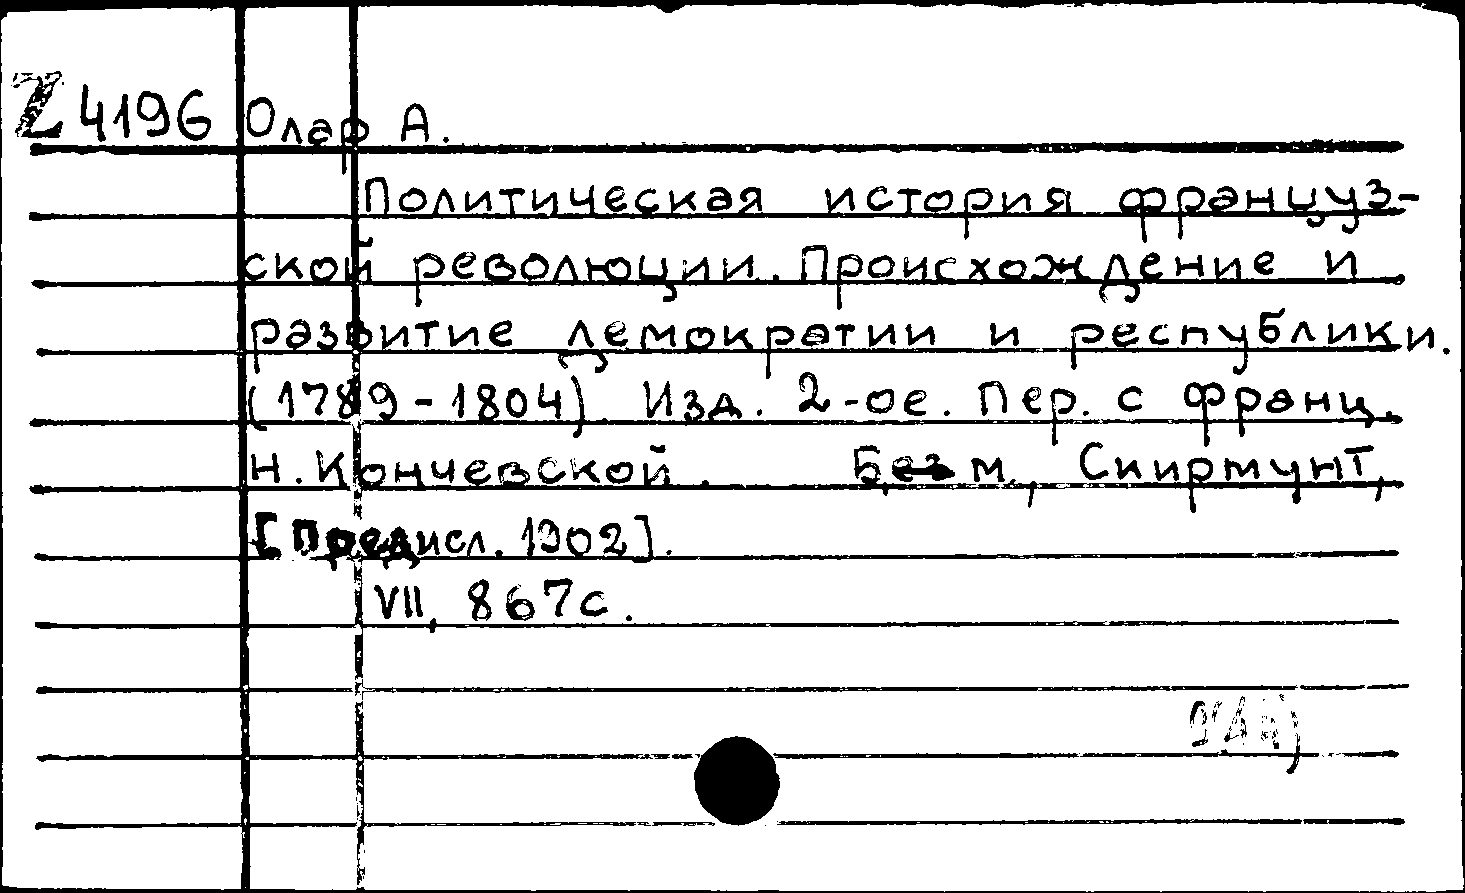 Z 4196 Олар А.
Политическая история француз-
ской революции. Происхождение и
развитие демократии и республики.
(1789-1804). Изд. 2-ое. Пер. с франц.
Н. Кончевской. Без м., Скирмунт,
[Предисл. 1902].
VII, 867с.